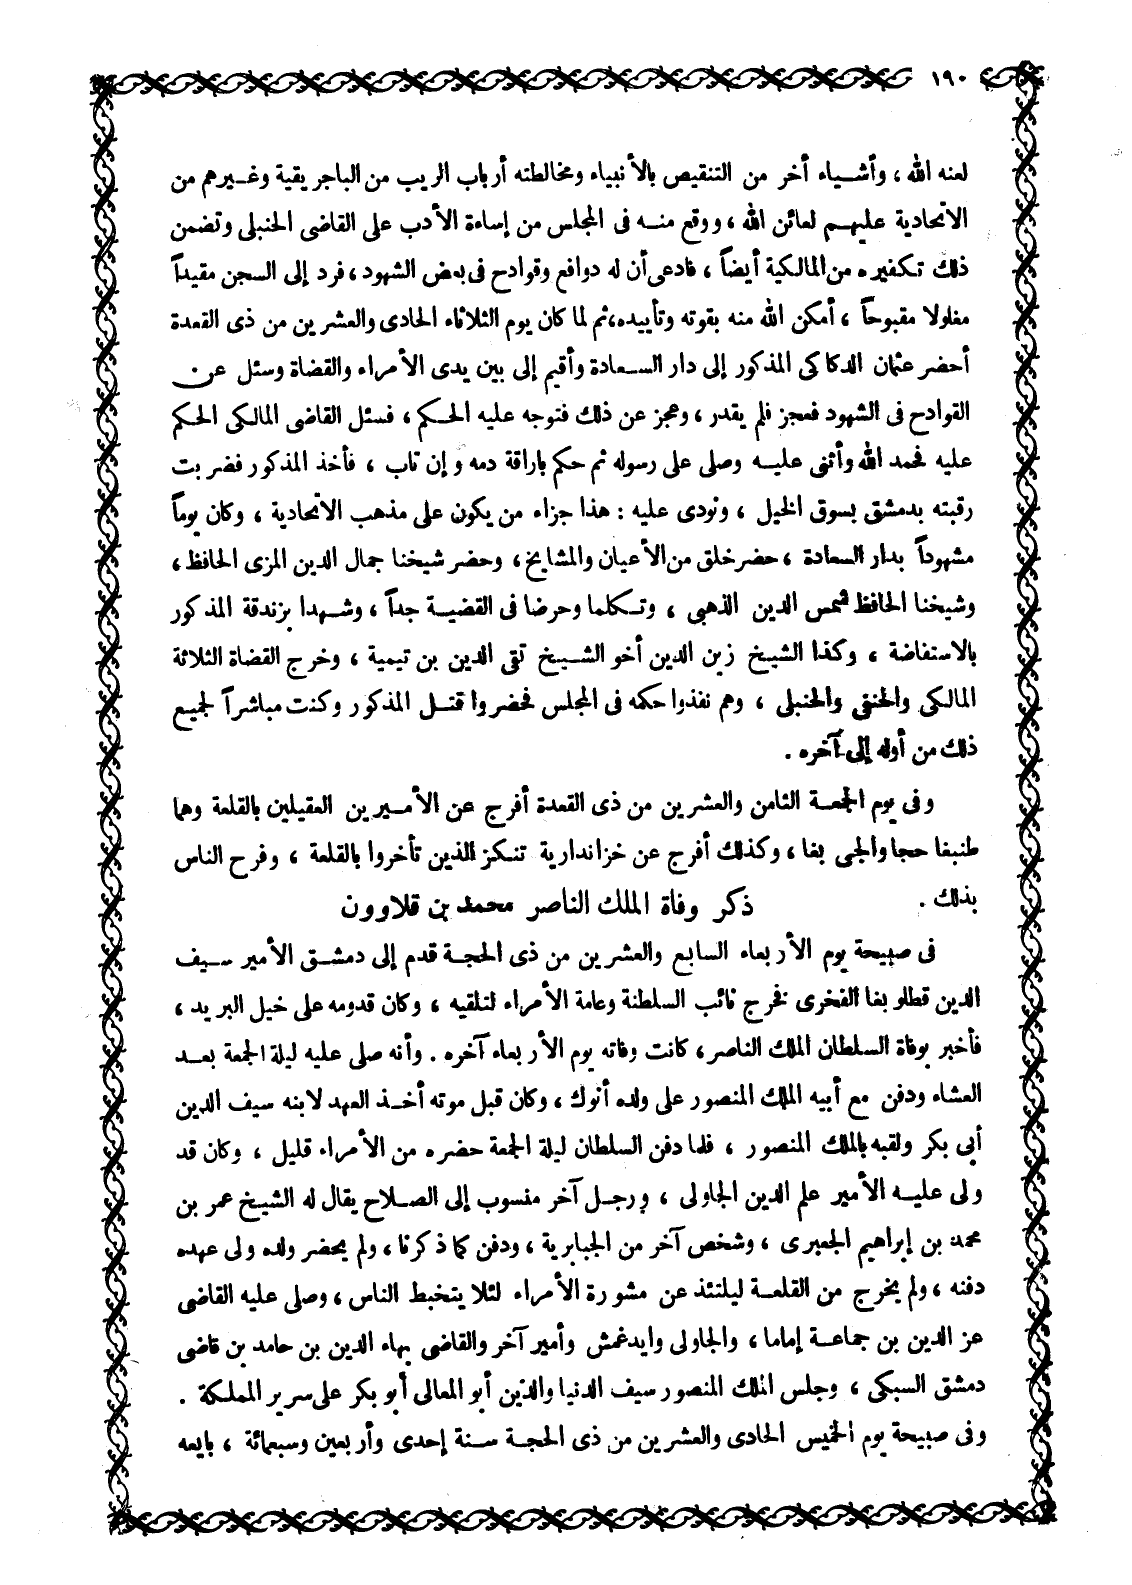 ١٩٠
لعنه الله ، وأشياء أخر من التنقيص بالأنبياء ومخالطته أرباب الريب من الباجريقية وغيرهم من
الاتحادية عليهم لعائن الله ، ووقع منه فى المجلس من إساءة الأدب على القاضى الحنبلى وتضمن
ذلك تكفيره من المالكية أيضاً ، فادعى أن له دوافع وقوادح فى بعض الشهود ، فرد إلى السجن مقيداً
مغلولا مقبوحاً ، أمكن الله منه بقوته وتأييده ، ثم لما كان يوم الثلاثاء الحادى والعشرين من ذى القعدة
أحضر عثمان الدكاكى المذكور إلى دار السعادة وأقيم إلى بين يدى الأمراء والقضاة وسئل عن
القوادح فى الشهود فعجز فلم يقدر ، وعجز عن ذلك فتوجه عليه الحكم ، فسئل القاضى المالكى الحكم
عليه فحمد الله وأثنى عليه وصلى على رسوله ثم حكم باراقة دمه وإن تاب ، فأخذ المذكور فضربت
رقبته بدمشق بسوق الخيل ، ونودى عليه : هذا جزاء من يكون على مذهب الاتحادية ، وكان يوماً
مشهوداً بدار السعادة ، حضر خلق من الأعيان والمشايخ ، وحضر شيخنا جمال الدين المزى الحافظ ،
وشيخنا الحافظ شمس الدين الذهبى ، وتكلما وحرضا فى القضية جداً ، وشهدا بزندقة المذكور
بالاستفاضة ، وكذا الشيخ زين الدين أخو الشيخ تقى الدين بن تيمية ، وخرج القضاة الثلاثة
المالكى والحنفى والحنبلى ، وهم نفذوا حكمه فى المجلس فحضروا قتل المذكور وكنت مباشراً لجميع
ذلك من أوله إلى آخره .
وفى يوم الجمعة الثامن والعشرين من ذى القعدة أفرج عن الأميرين العقيلين بالقلعة وهما
طنبغا حجا والجى بغا ، وكذلك أفرج عن خزاندارية تنكز الذين تأخروا بالقلعة ، وفرح الناس
بذلك .
ذكر وفاة الملك الناصر محمد بن قلاوون
فى صبيحة يوم الأربعاء السابع والعشرين من ذى الحجة قدم إلى دمشق الأمير سيف
الدين قطلوبغا الفخرى فخرج نائب السلطنة وعامة الأمراء لتلقيه ، وكان قدومه على خيل البريد ،
فأخبر بوفاة السلطان الملك الناصر ، كانت وفاته يوم الأربعاء آخره . وأنه صلى عليه ليلة الجمعة بعد
العشاء ودفن مع أبيه الملك المنصور على ولده أنوك ، وكان قبل موته أخذ العهد لابنه سيف الدين
أبى بكر ولقبه بالملك المنصور ، فلما دفن السلطان ليلة الجمعة حضره من الأمراء قليل ، وكان قد
ولى عليه الأمير علم الدين الجاولى ، ورجل آخر منسوب إلى الصلاح يقال له الشيخ عمر بن
محمد بن إبراهيم الجعبرى ، وشخص آخر من الجبابرية ، ودفن كما ذكرنا ، ولم يحضر ولده ولى عهده
دفنه ، ولم يخرج من القلعة ليلتئذ عن مشورة الأمراء لئلا يتخبط الناس ، وصلى عليه القاضى
عز الدين بن جماعة إماما ، والجاولى وايدغمش وأمير آخر والقاضى بهاء الدين بن حامد بن قاضى
دمشق السبكى ، وجلس الملك المنصور سيف الدنيا والدين أبو المعالى أبو بكر على سرير المملكة .
وفى صبيحة يوم الخميس الحادى والعشرين من ذى الحجة سنة إحدى وأربعين وسبعمائة ، بايعه